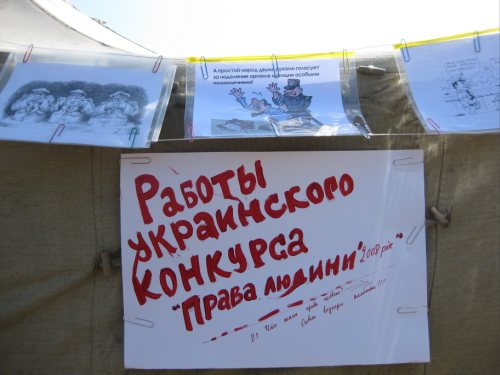 А простой народ двумя руками голосует
за наделение органов милиции особыми
полномочиями!
Работы
украинского
конкурса
"Права людини" 2008 рік"
P.S.